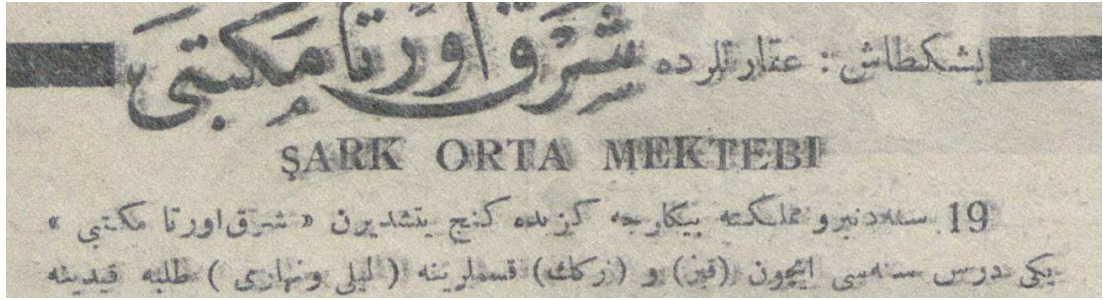 بشكطاش : عقارتلرده شرق اورتا مكتبى
ŞARK ORTA MEKTEBI
19 سنه‌دنبرو مملكته بيكارجه كزيده كنج يتشديرن « شرق اورتا مكتبى »
يكى درس سنه‌سى ايچون (قيز) و (اركك) قسملرينه ( ليلى ونهارى ) طلبه قيدينه